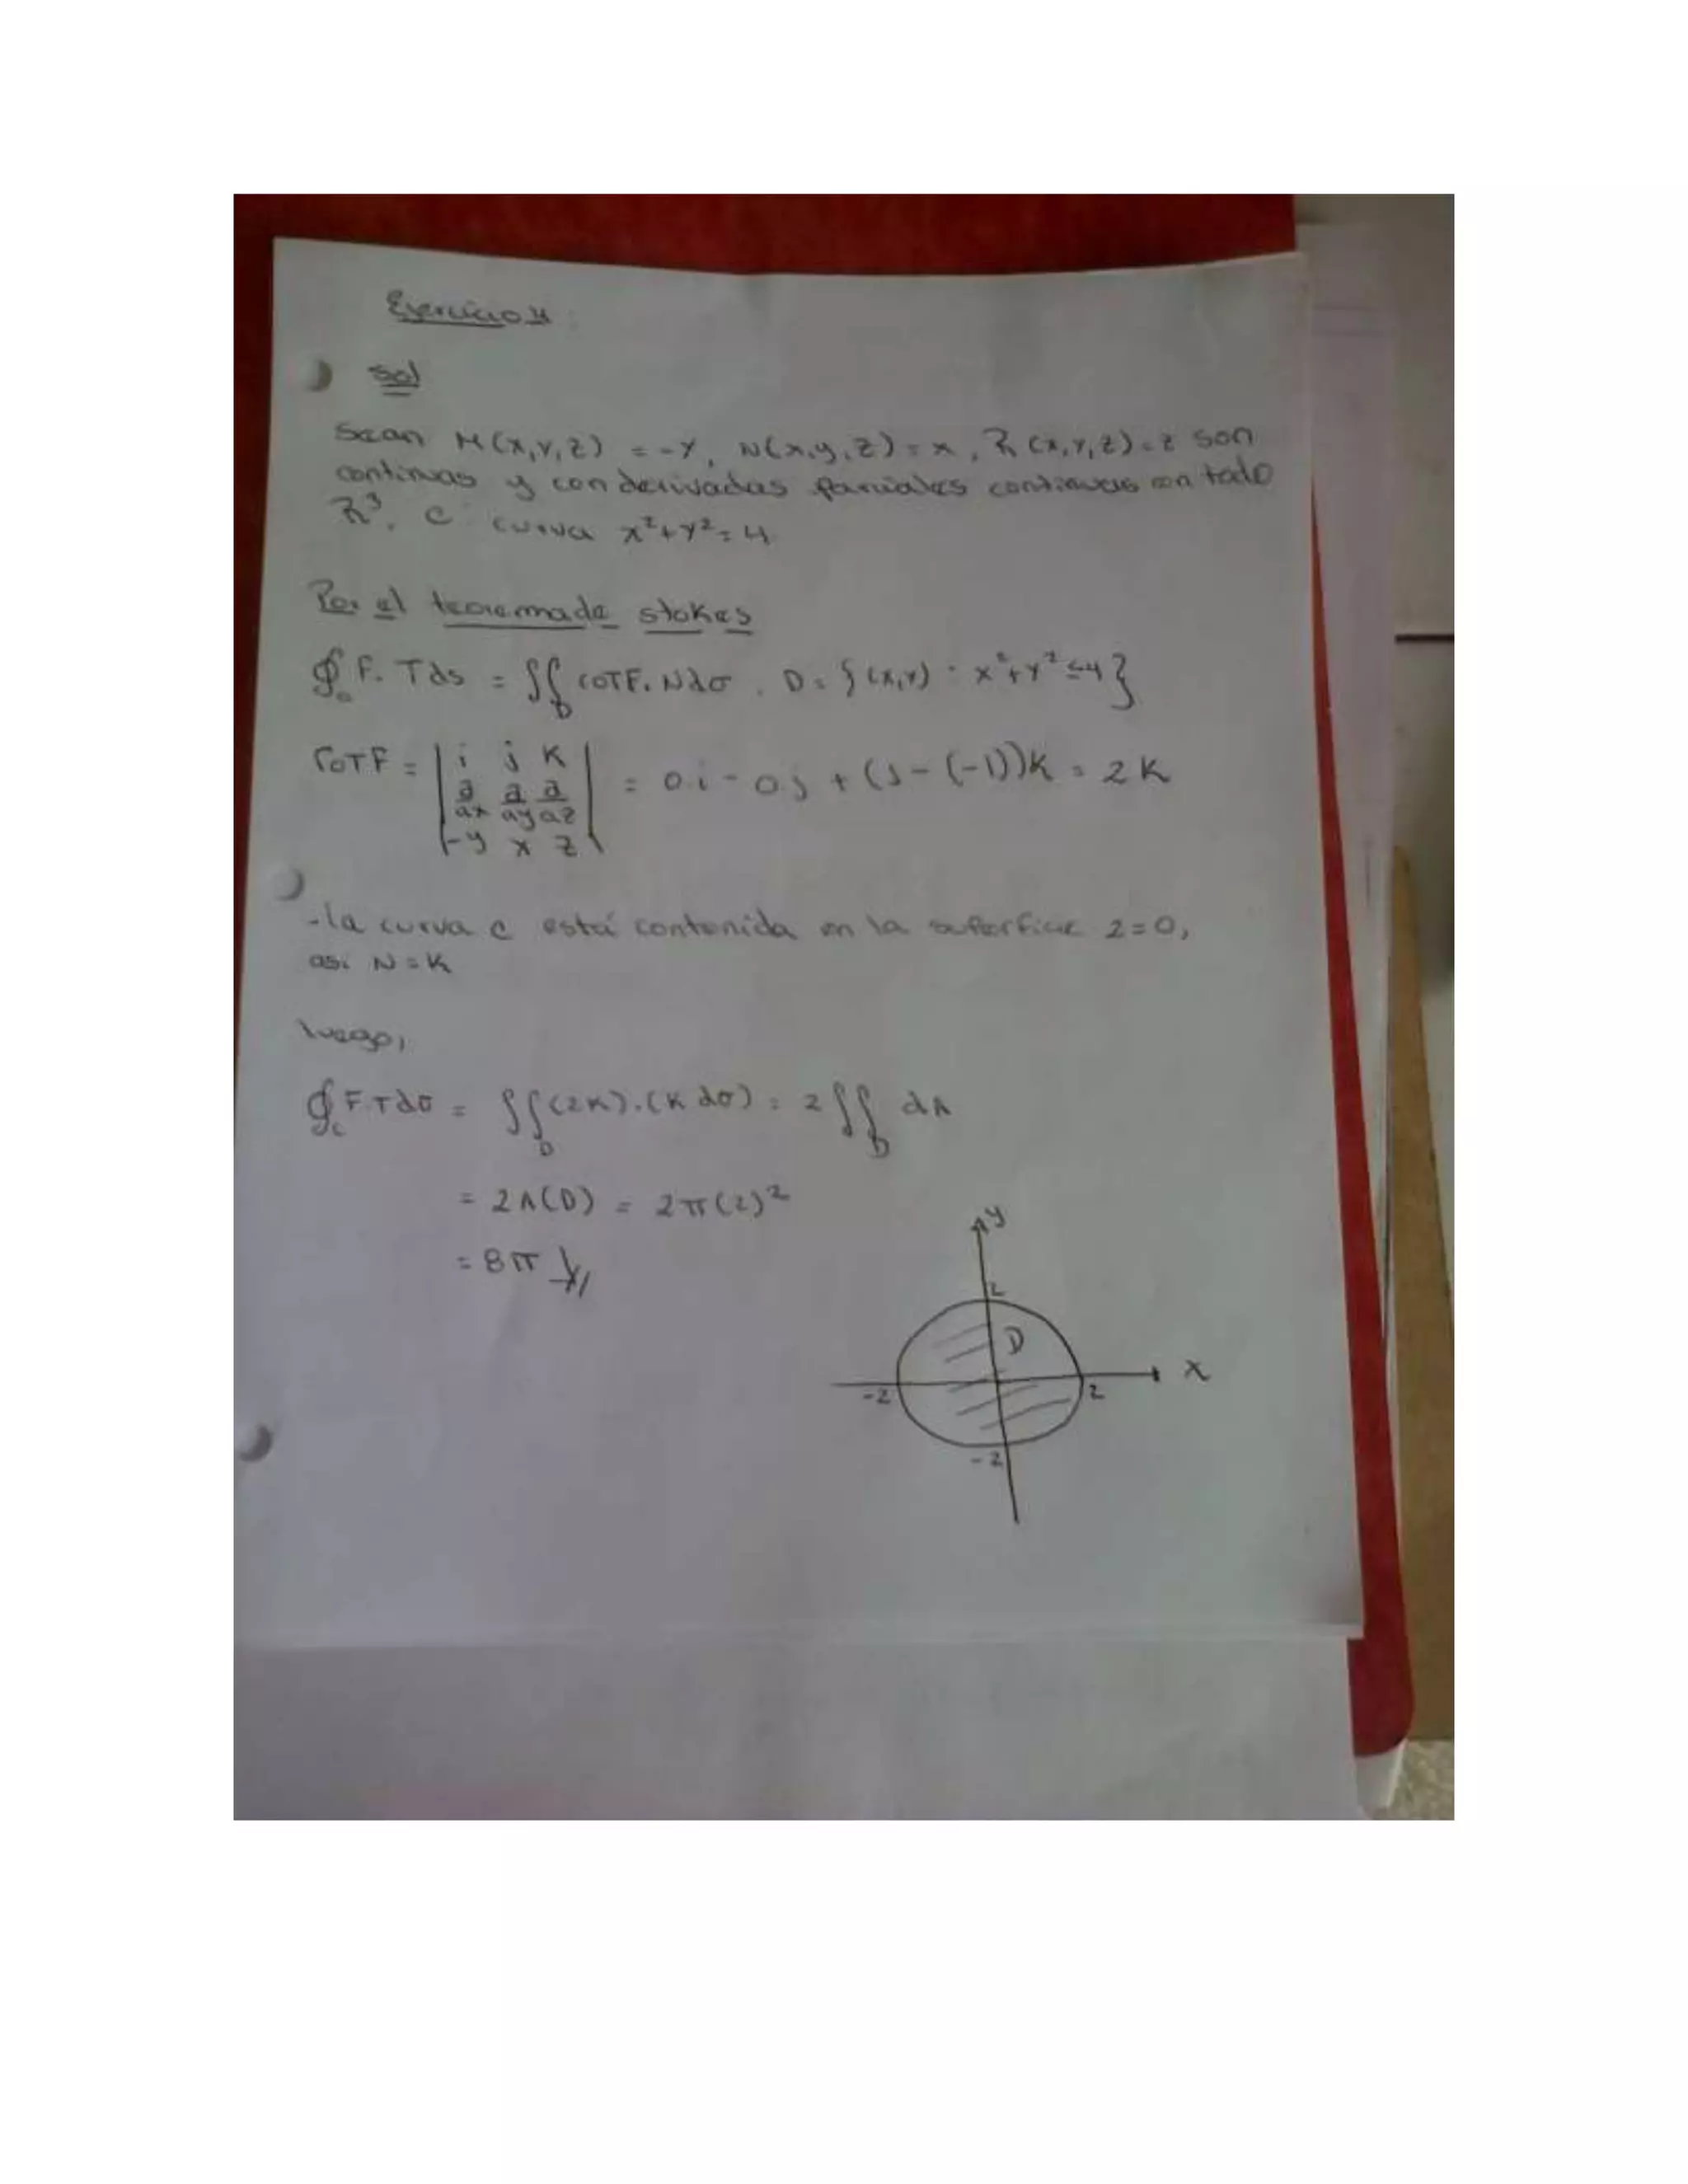 Ejercicio 4:
Sol
Sean M(x,y,z) = -y, N(x,y,z) = x, R(x,y,z) = z son
continuas y con derivadas parciales continuas en todo
R³. C: curva x²+y²=4
Por el teorema de stokes
∮c F. T ds = ∬D rotF. N dσ . D = {(x,y) : x²+y² ≤4}
rotF = | i j k | = 0.i - 0.j + (1-(-1))k = 2k
∂/∂x ∂/∂y ∂/∂z
-y x z
-la curva c está contenida en la superficie z=0,
asi N = k
luego,
∮c F.T dσ = ∬D (2k).(k dσ) = 2∬D dA
= 2A(D) = 2π(2)²
= 8π
y
2
D
x
-2
2
-2